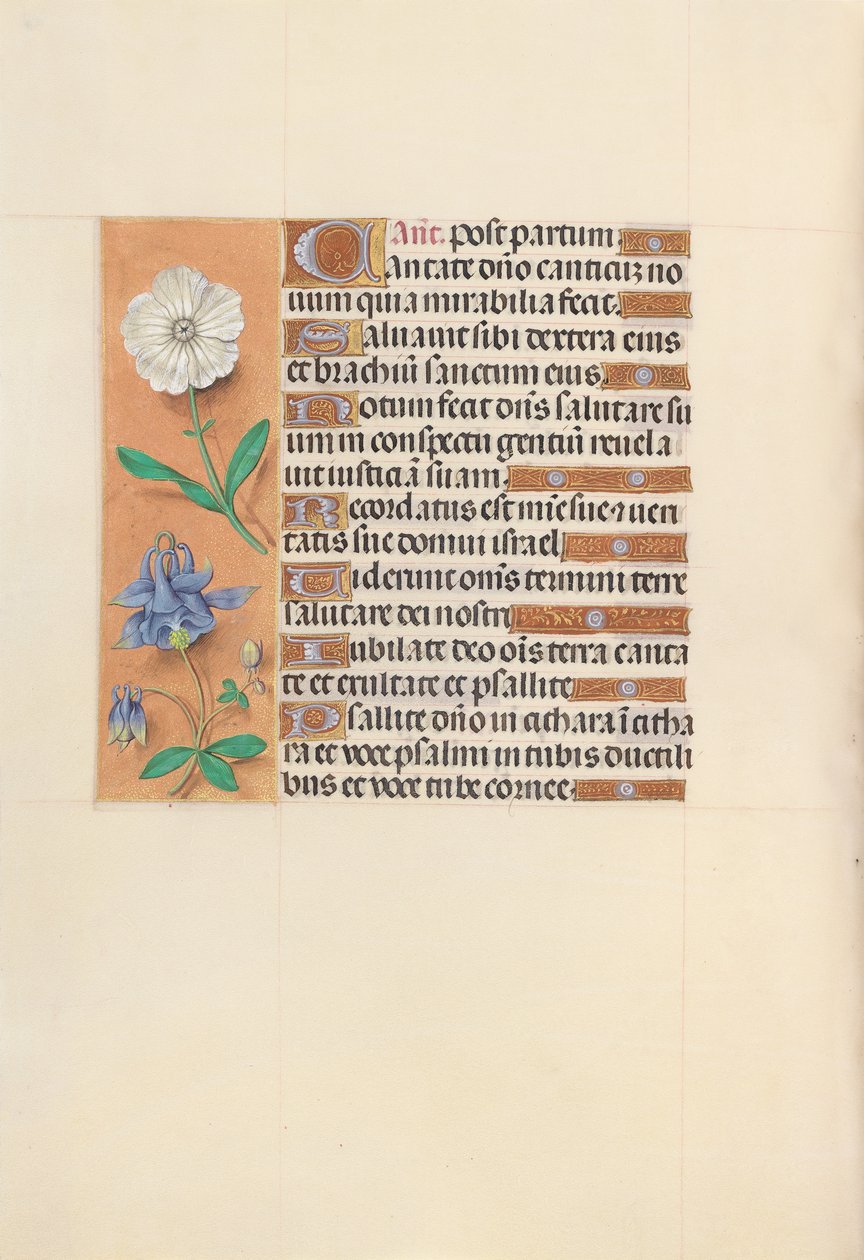 Añt. post partum
Cantate dño canticuʒ no
uum quia mirabilia fecit.
Saluauit sibi dextera eius
et brachiũ sanctum eius.
Notum fecit dñs salutare su
um in conspectu gentiũ reuela
uit iusticiã suam.
Recordatus est mĩe sue ⁊ ueri
tatis sue domui israel.
Uiderunt om̃s termini terre
salutare dei nostri
Iubilate deo oĩs terra canta
te et exultate et psallite.
Psallite dño in cithara ĩ citha
ra et voce psalmi in tubis ductili
bus et voce tube cornee.